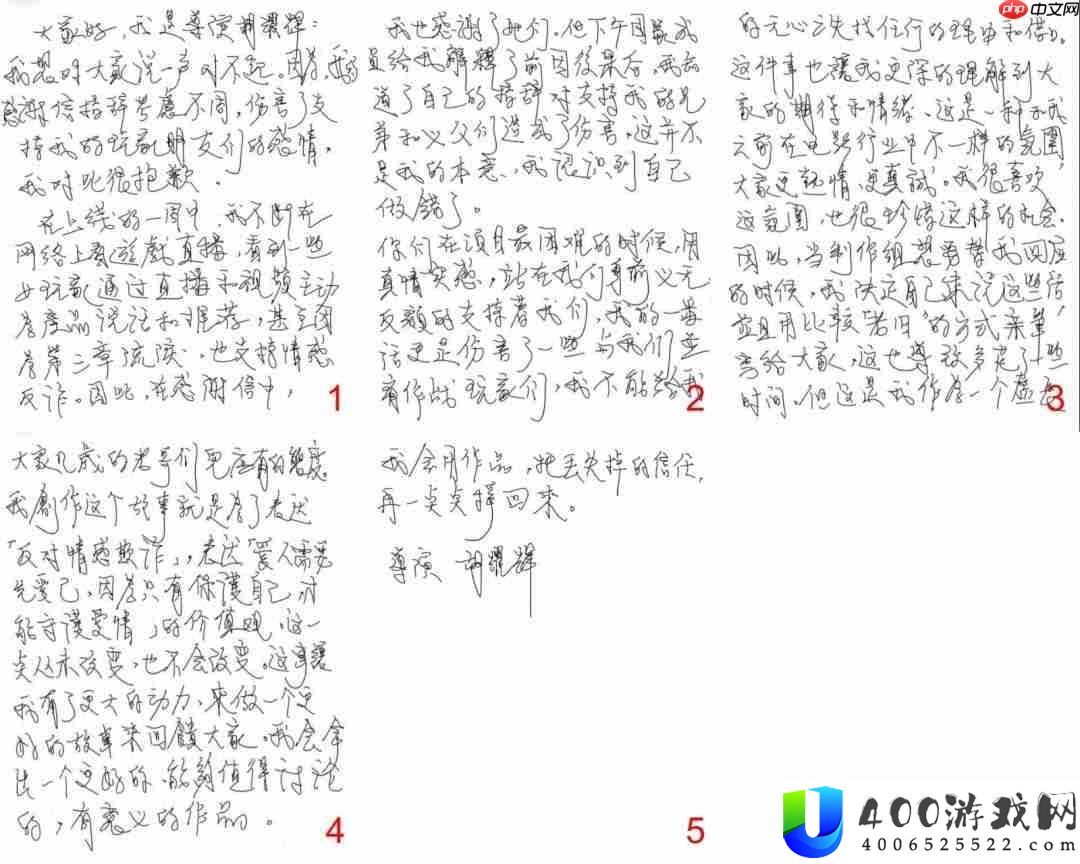 大家好,我是导演胡耀輝:
我想对大家说一声对不起。因為我的
感謝信措辞考慮不周,伤害了支
持我的玩家朋友们的感情,
我对此很抱歉。
在上线的一周中,我不断在
网络上看遊戲直播,看到一些
女玩家通过直播和视频主动
為產品说话和推荐,甚至因
為第二章流泪,也支持情感
反诈。因此,在感谢信中,
1
我也感謝了她们。但下午同事成
員给我解釋了前因後果后,我知
道了自己的措辞对支持我的兄
弟和义父们造成了伤害,这并不
是我的本意,我认识到自己
做錯了。
你们在项目最困难的时候,用
真情实感,站在我们身前义无
反顾的支持着我们,我的一番
话更是伤害了一些与我们並
肩作战玩家们,我不能给我
2
的无心之失找任何的理由和借口。
这件事也讓我更深的理解到大
家的期待和情绪。这是一种和我
之前在电影行业中不一样的氛圍
大家更热情,更真誠。我很喜欢
这氛围,也很珍惜这样的机会。
因此,当制作组想要帮我回应
的时候,我决定自己来说这些话
並且用比較“老旧”的方式亲筆
写给大家,这也導致多花了一些
时间。但这是我作為一个虚长
3
大家几歲的老哥们兒应有的態度
我創作这个故事就是為了表达
「反对情感欺诈」,表达「爱人需要
先爱己,因為只有保護自己,才
能守護爱情」的价值观。这一
点从未改变,也不会改变。这事讓
我有了更大的动力,来做一个更
好的故事来回饋大家。我会拿
出一个更好的,能夠值得讨论
的,有意义的作品。
4
我会用作品,把丟失掉的信任,
再一点点择回来。
導演 胡耀輝
5
php 中文网
400游戏网
4006525522.com